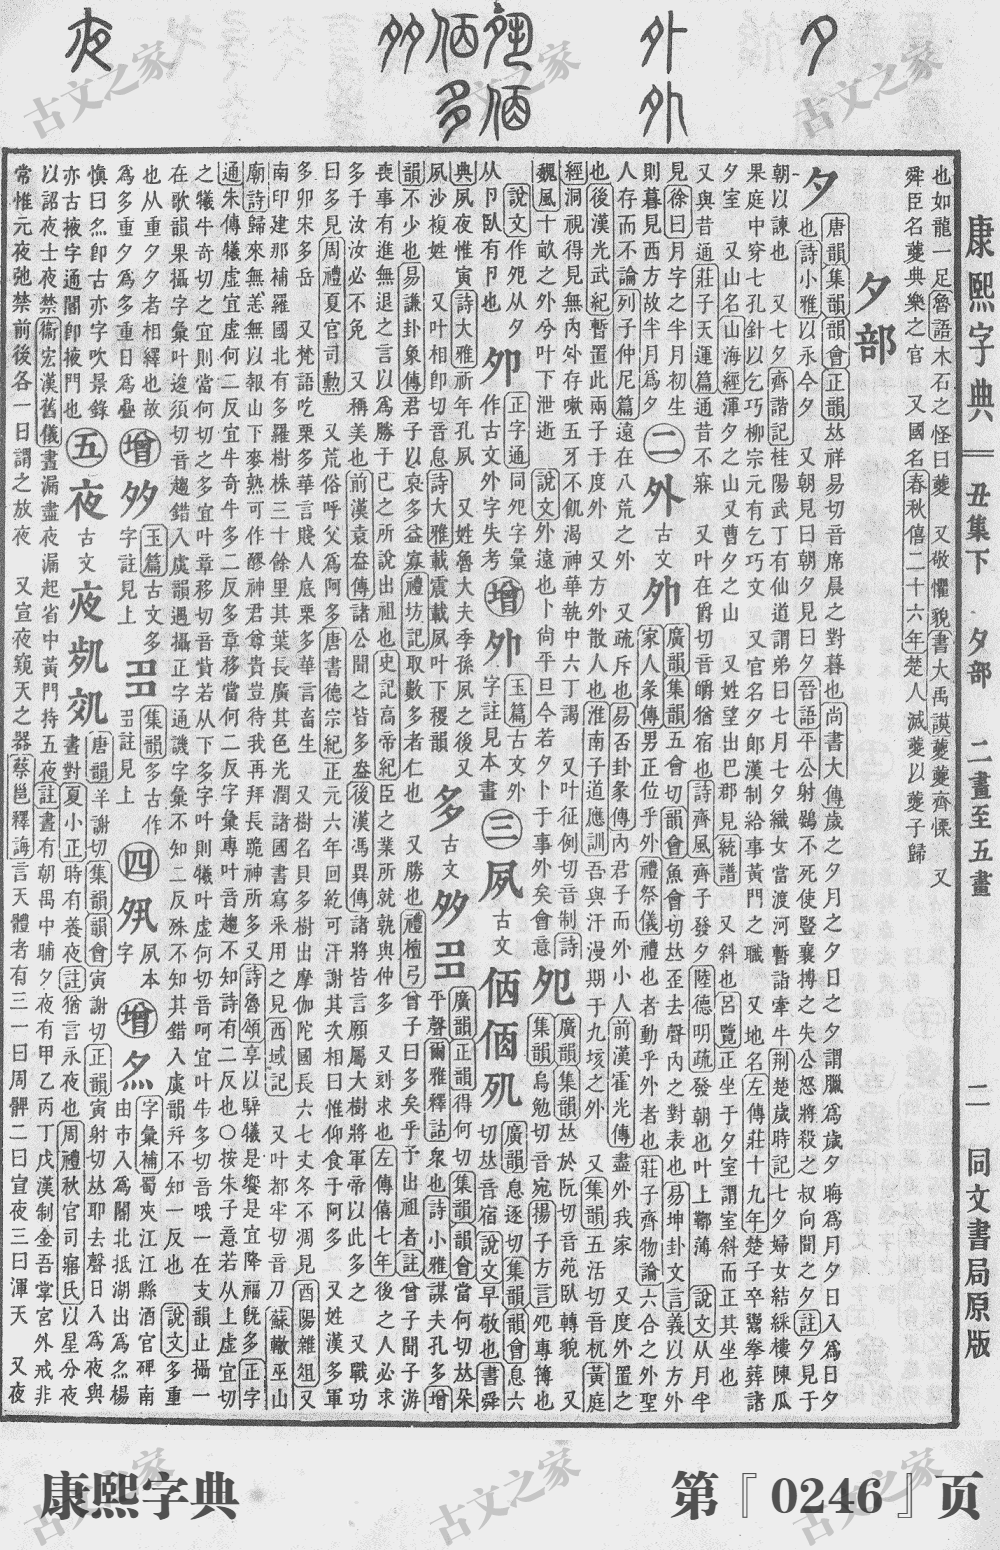 康熙字典 丑集下 夕部 二畫至五畫 二 同文書局原版
也如龍一足魯語木石之怪曰夔 又敬懼貌書大禹謨夔夔齊慄 又
舜臣名夔典樂之官 又國名春秋僖二十六年楚人滅夔以夔子歸
夕部
夕 唐韻集韻韻會正韻𠀤祥易切音席晨之對暮也尚書大傳歲之夕月之夕日之夕謂臘爲歲夕晦爲月夕日入爲日夕
也詩小雅以永今夕 又朝見曰朝夕見曰夕晉語平公射鴳不死使豎襄搏之失公怒將殺之叔向聞之夕註夕見于
朝以諫也 又七夕齊諧記桂陽武丁有仙道謂弟曰七月七夕織女當渡河暫詣牽牛荆楚歲時記七夕婦女結綵樓陳瓜
果庭中穿七孔針以乞巧柳宗元有乞巧文 又官名夕郞漢制給事黃門之職 又地名左傳莊十九年楚子卒鬻拳葬諸
夕室 又山名山海經渾夕之山又曹夕之山 又姓望出巴郡見統譜 又斜也呂覽正坐于夕室謂室斜而正其坐也
又與昔通莊子天運篇通昔不寐 又叶在爵切音皭猶宿也詩齊風齊子發夕陸德明疏發朝也叶上鞹薄 說文从月半
見徐曰月字之半月初生
則暮見西方故半月爲夕
二 外 古文 夘 廣韻集韻五會切韻會魚會切𠀤歪去聲內之對表也易坤卦文言義以方外
家人彖傳男正位乎外禮祭儀禮也者動乎外者也莊子齊物論六合之外聖
人存而不論列子仲尼篇遠在八荒之外 又疏斥也易否卦彖傳內君子而外小人前漢霍光傳盡外我家 又度外置之
也後漢光武紀暫置此兩子于度外 又方外散人也淮南子道應訓吾與汗漫期于九垓之外 又集韻五活切音杌黃庭
經洞視得見無內外存嗽五牙不飢渴神華執中六丁謁 又叶征例切音制詩
魏風十畝之外兮叶下泄逝 說文外遠也卜尚平旦今若夕卜于事外矣會意
夗 廣韻集韻𠀤於阮切音苑臥轉貌 又
集韻烏勉切音宛揚子方言夗專簿也
說文作夗从夕
从卪臥有卪也
夘 正字通同夗字彙
作古文外字失考
增 外 玉篇古文外
字註見本畫
三 夙 古文 𠈇 㑉 𡖊 廣韻息逐切集韻韻會息六
切𠀤音宿說文早敬也書舜
典夙夜惟寅詩大雅祈年孔夙 又姓魯大夫季孫夙之後又
夙沙複姓 又叶相卽切音息詩大雅載震載夙叶下稷韻
多 古文 𡖇 𡖈 廣韻正韻得何切集韻韻會當何切𠀤朵
平聲爾雅釋詁衆也詩小雅謀夫孔多增
韻不少也易謙卦象傳君子以裒多益寡禮坊記取數多者仁也 又勝也禮檀弓曾子曰多矣乎予出祖者註曾子聞子游
喪事有進無退之言以爲勝于已之所說出祖也史記高帝紀臣之業所就孰與仲多 又刻求也左傳僖七年後之人必求
多于汝汝必不免 又稱美也前漢袁盎傳諸公聞之皆多盎後漢馮異傳諸將皆言願屬大樹將軍帝以此多之 又戰功
曰多見周禮夏官司勲 又荒俗呼父爲阿多唐書德宗紀正元六年回紇可汗謝其次相曰惟仰食于阿多 又姓漢多軍
多卯宋多岳 又梵語吃栗多華言賤人底栗多華言畜生 又樹名貝多樹出摩伽陀國長六七丈冬不凋見酉陽雜俎又
南印建那補羅國北有多羅樹株三十餘里其葉長廣其色光潤諸國書寫采用之見西域記 又叶都牢切音刀蘇轍巫山
廟詩歸來無恙無以報山下麥熟可作醪神君尊貴豈待我再拜長跪神所多又詩魯頌享以騂犧是饗是宜降福旣多正字
通朱傳犧虛宜虛何二反宜牛奇牛多二反多章移當何二反字彙專叶音趨不知詩有二反也〇按朱子意若从上虛宜切
之犧牛奇切之宜則當何切之多宜叶章移切音貲若从下多字叶則犧叶虛何切音呵宜叶牛多切音哦一在支韻止攝一
在歌韻果攝字彙叶逡須切音趨錯入虞韻遇攝正字通譏字彙不知二反殊不知其錯入虞韻拜不知一反也 說文多重
也从重夕夕者相繹也故
爲多重夕爲多重日爲疊
增 𡖇 玉篇古文多
字註見上
𡖈 集韻多古作
𡖈註見上
四 𡖊 夙本
字
增 𡖋 字彙補蜀夾江江縣酒官碑南
由市入爲閣北抵湖出爲𡖋楊
愼曰𡖋卽古亦字吹景錄
亦古掖字通閣卽掖門也
五 夜 古文 𡖍 𡖎 𡖏 唐韻羊謝切集韻韻會寅謝切正韻寅射切𠀤耶去聲日入爲夜與
晝對夏小正時有養夜註猶言永夜也周禮秋官司寤氏以星分夜
以詔夜士夜禁衞宏漢舊儀晝漏盡夜漏起省中黃門持五夜註晝有朝禺中晡夕夜有甲乙丙丁戊漢制金吾掌宮外戒非
常惟元夜弛禁前後各一日謂之放夜 又宣夜窺天之器蔡邕釋誨言天體者有三一曰周髀二曰宣夜三曰渾天 又夜
古文之家
康熙字典
第『0246』页